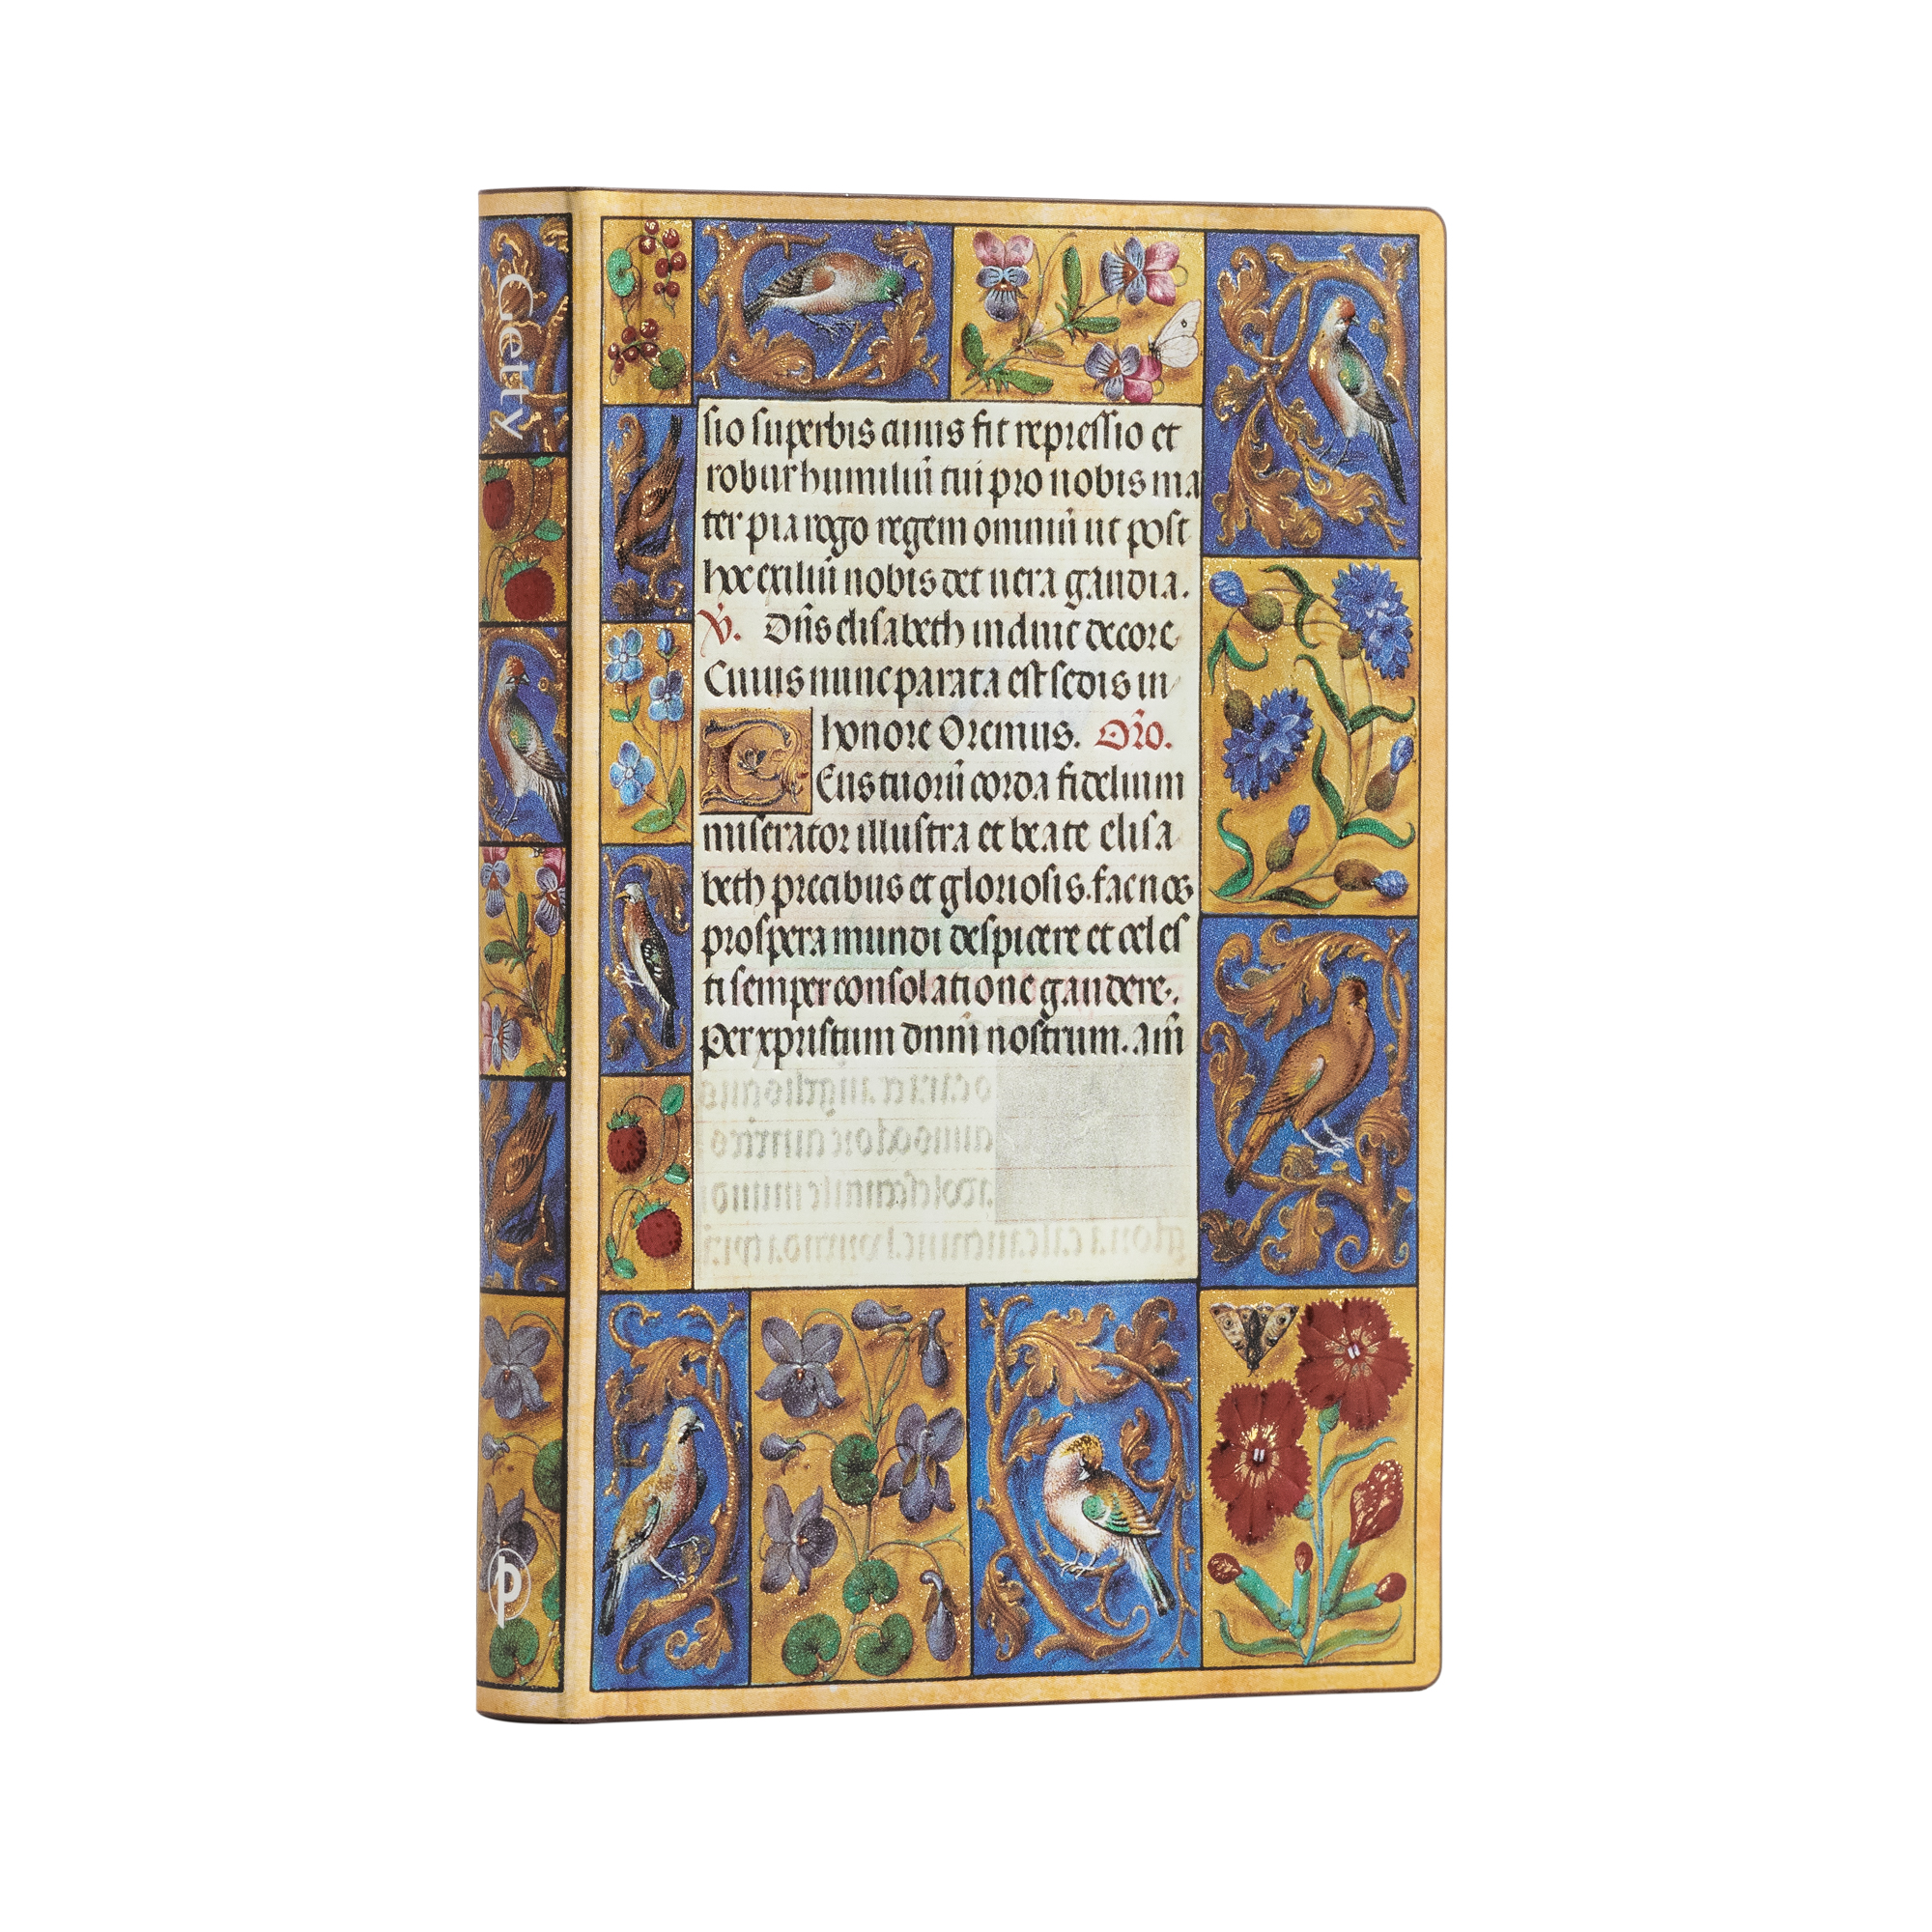 Getty
sio superbis cuius fit repressio et
robur humiliū tui pro nobis ma
ter pia rogo regem omniū ut post
hoc exiliū nobis det uera gaudia.
V̇. Dn̄s elisabeth induit decore
Cuius nunc parata est sedis in
honore Oremus. Oro̅.
Deus tuorū corda fidelium
miserator illustra et beate elisa
beth precibus et gloriosis. fac nos
prospera mundi despicere et celes
ti semper consolatione gaudere.
Per xpristum dnm̄ nostrum. Am̄
p